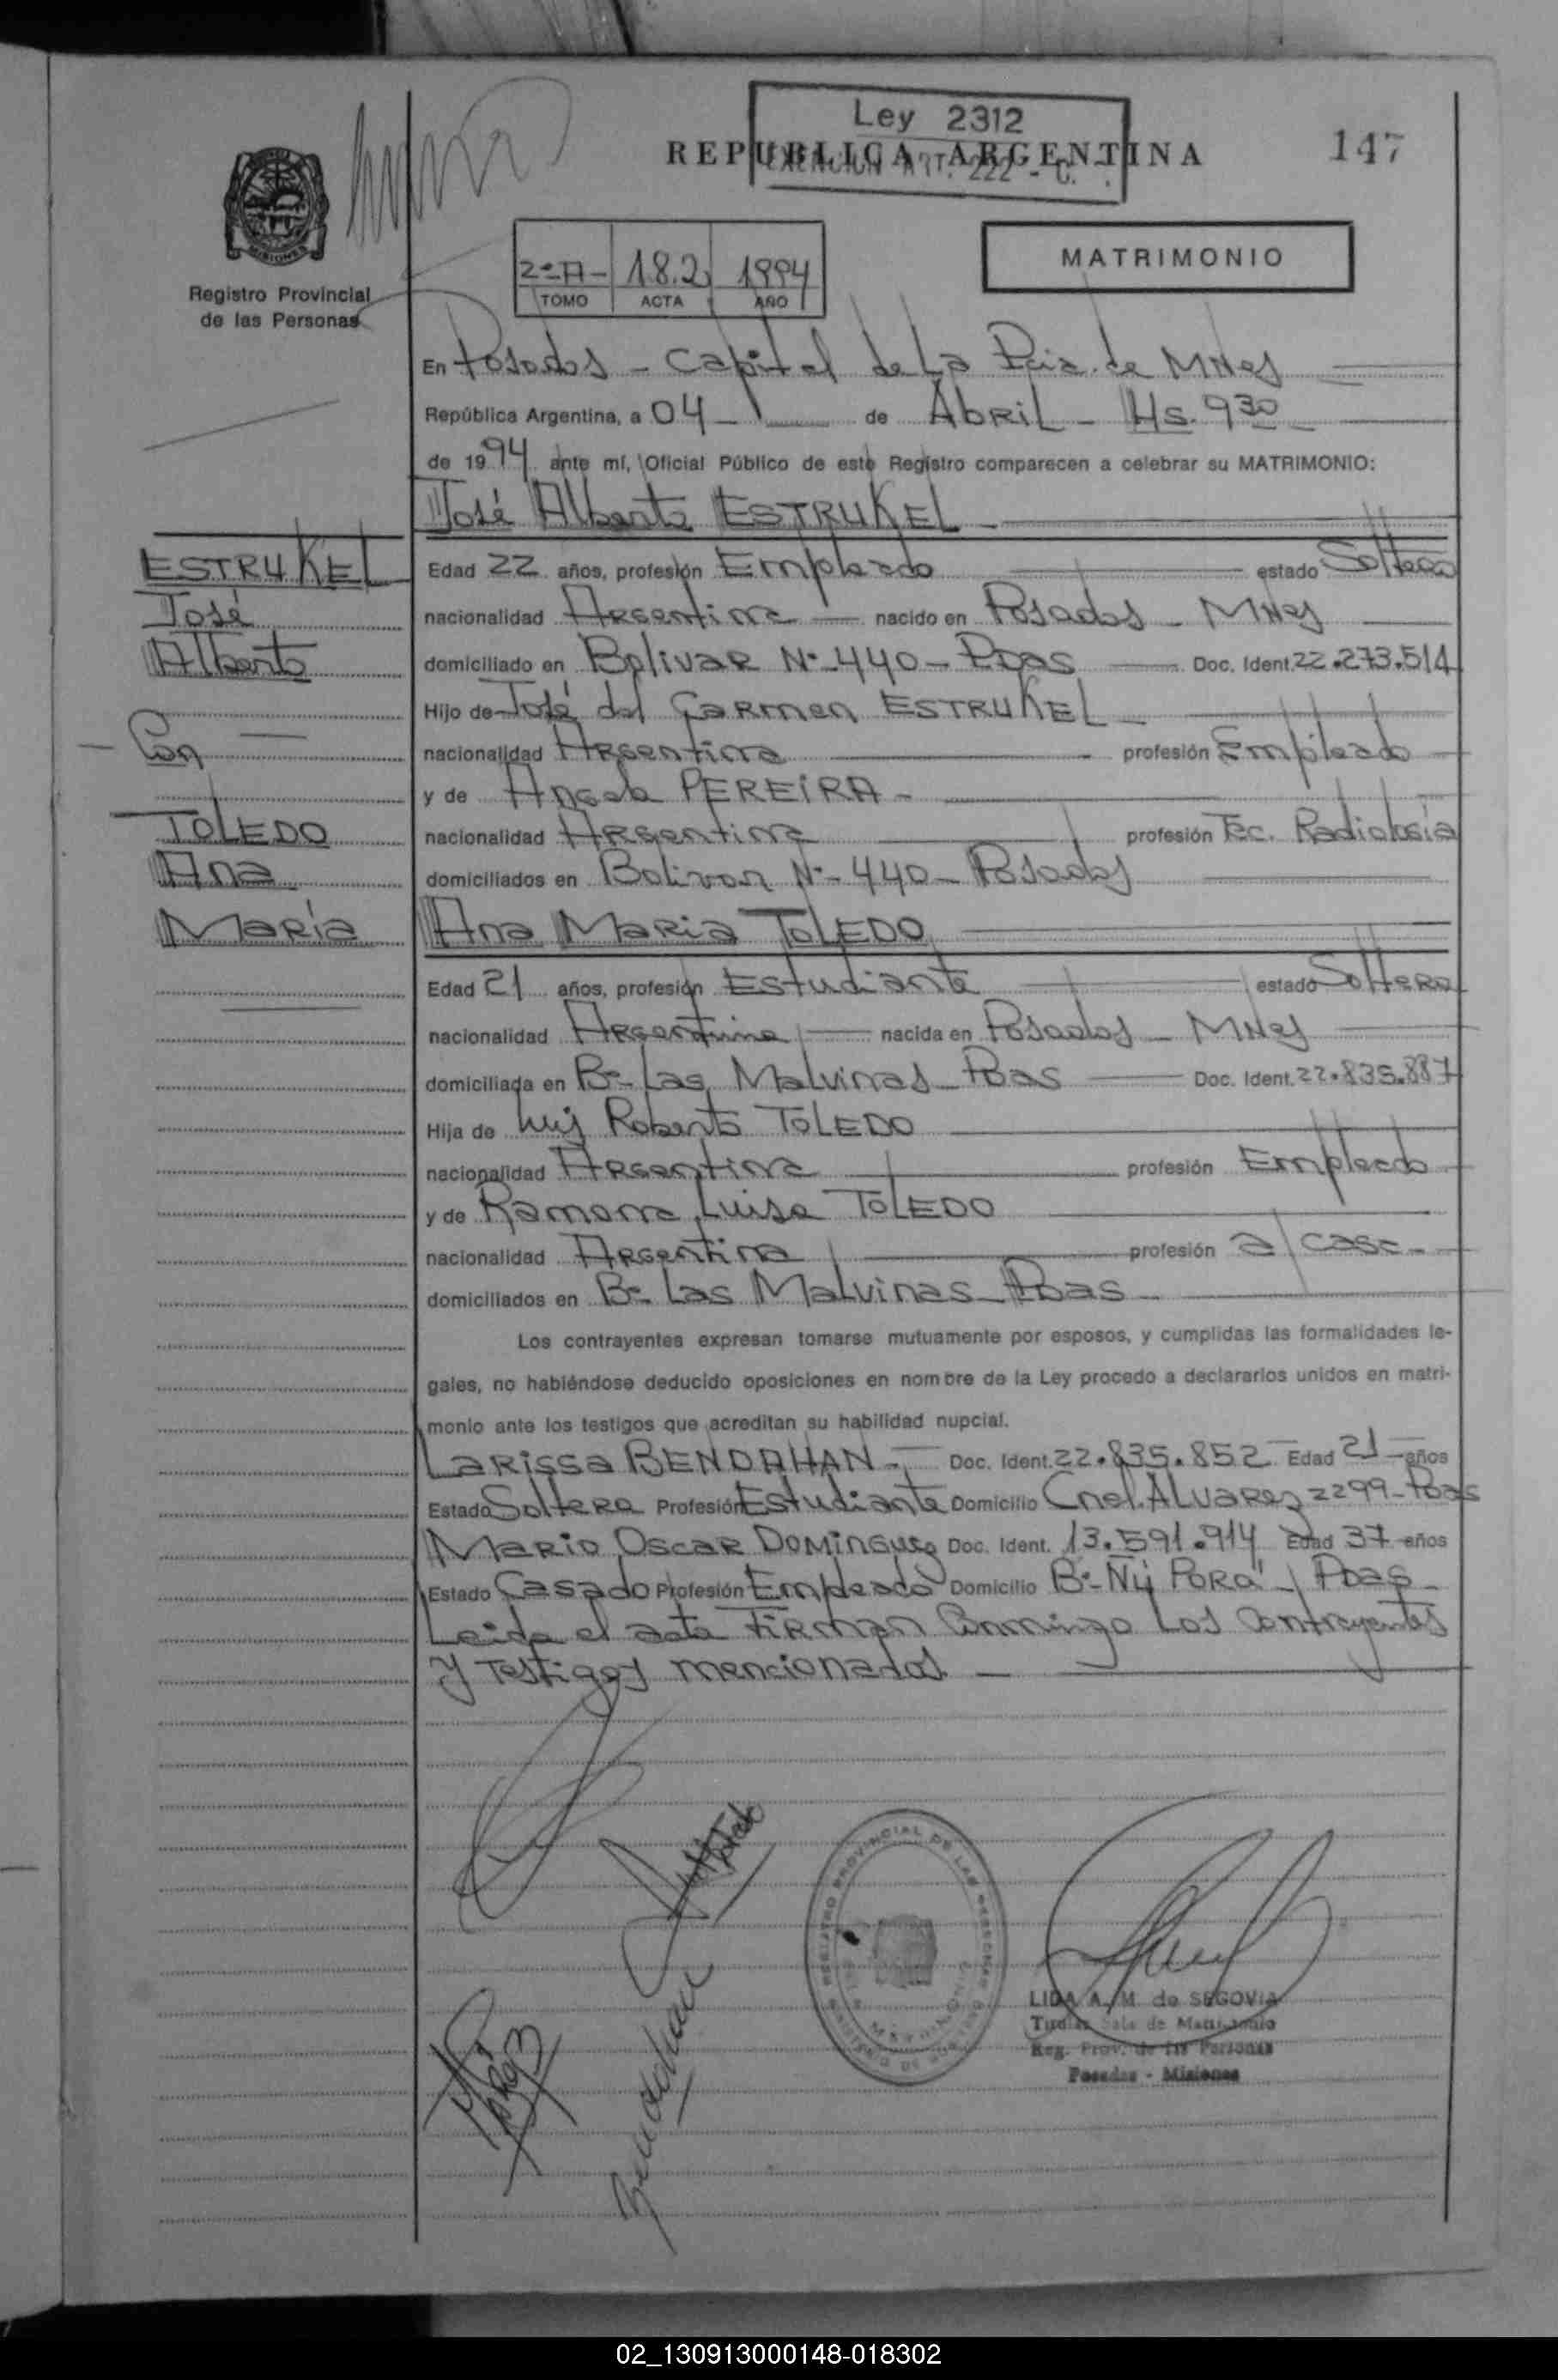 Ley 2312
REPUBLICA ARGENTINA
EXENCION ART. 222 - C.
147
MISIONES
Registro Provincial
de las Personas
2º-A- 182 1994
TOMO ACTA AÑO
MATRIMONIO
En Posadas - Capital de La Pcia. de MNes
República Argentina, a 04 - de Abril - Hs. 930
de 1994 ante mí, Oficial Público de este Registro comparecen a celebrar su MATRIMONIO:
José Alberto ESTRUKEL
ESTRUKEL
José
Alberto
- Con -
TOLEDO
Ana
María
Edad 22 años, profesión Empleado estado Soltero
nacionalidad Argentina nacido en Posadas - MNes
domiciliado en Bolivar Nº 440 - Pdas Doc. Ident. 22.273.514
Hijo de José del Carmen ESTRUKEL -
nacionalidad Argentina profesión Empleado
y de Angela PEREIRA -
nacionalidad Argentina profesión Tec. Radiología
domiciliados en Bolivar Nº- 440 - Posadas
Ana Maria TOLEDO
Edad 21 años, profesión Estudiante estado Soltera
nacionalidad Argentina nacida en Posadas - MNes
domiciliada en Bº- Las Malvinas - Pdas Doc. Ident. 22.835.887
Hija de Luis Roberto TOLEDO
nacionalidad Argentina profesión Empleado
y de Ramona Luisa TOLEDO
nacionalidad Argentina profesión a/casa -
domiciliados en Bº- Las Malvinas - Pdas -
Los contrayentes expresan tomarse mutuamente por esposos, y cumplidas las formalidades le-
gales, no habiéndose deducido oposiciones en nombre de la Ley procedo a declararlos unidos en matri-
monio ante los testigos que acreditan su habilidad nupcial.
Larissa BENDAHAN - Doc. Ident. 22.835.852 Edad 21 años
Estado Soltera Profesión Estudiante Domicilio Cnel. Alvarez 2299 - Pdas
Mario Oscar Dominguez Doc. Ident. 13.591.914 Edad 37 años
Estado Casado Profesión Empleado Domicilio Bº- Ñu Porá - Pdas -
Leida el acta Firman Conmigo Los Contrayentes
y Testigos mencionados -
REGISTRO PROVINCIAL DE LAS PERSONAS
Bendahan
LIDA A. M. de SEGOVIA
Titular Sala de Matrimonio
Reg. Prov. de las Personas
Posadas - Misiones
02_130913000148-018302